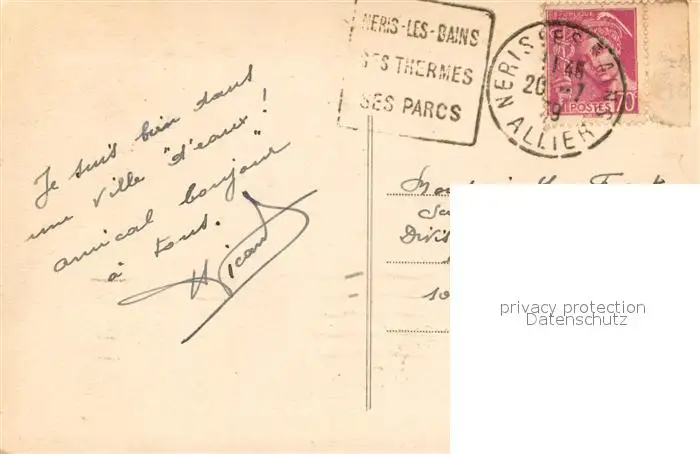 NERIS-LES-BAINS
SES THERMES
SES PARCS
NERIS LES BAINS
20 -7
39
ALLIER
POSTES 70
Je suis bien dans
une ville "d'eaux"!
amical bonjour
à tous.
Divis
10
privacy protection
Datenschutz